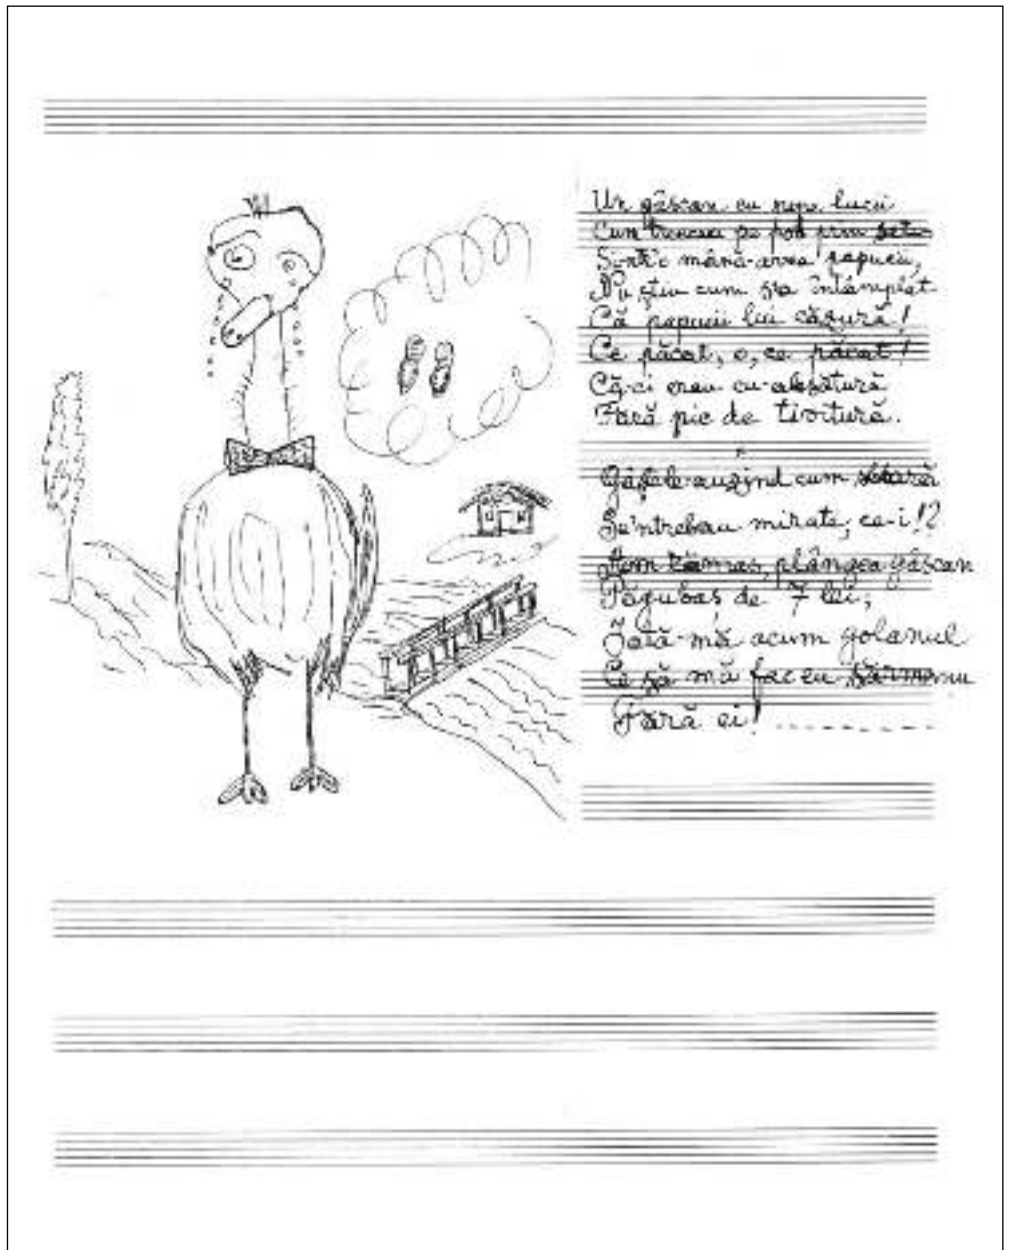 Un gâscan cu lucii
Cum trecea pe pod prin sat
Și-ntr'o mână-avea papucii,
Nu știu cum s'a întâmplat
Că papucii lui căzură!
Ce păcat, o, ce păcat!
Că-ci erau cu
Fără pic de tivitură.
Gâștele auzind cum
Se'ntrebau mirate, ce-i!?
Am rămas, plângea gâscan
Păgubaș de 7 lei;
Iată-mă acum golanul
Ce să mă fac eu sărmanu
Fără ei!